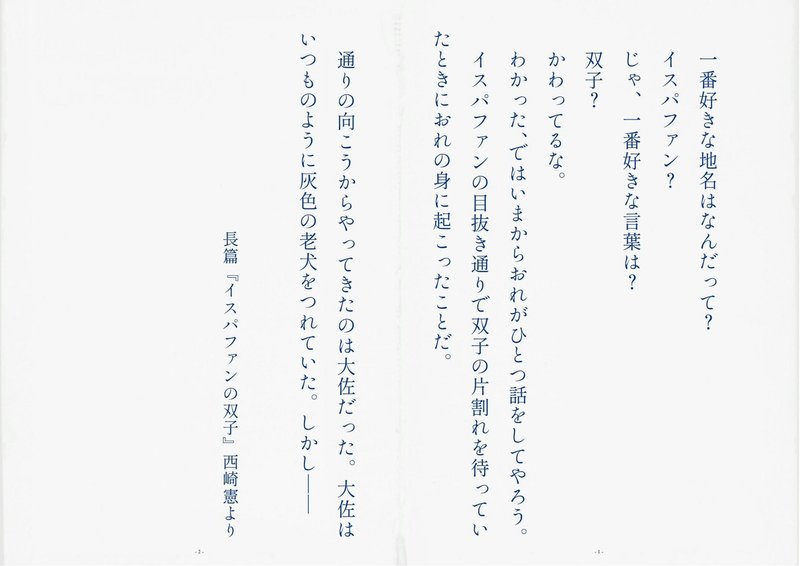 一番好きな地名はなんだって？
イスパファン？
じゃ、一番好きな言葉は？
双子？
かわってるな。
わかった、ではいまからおれがひとつ話をしてやろう。
イスパファンの目抜き通りで双子の片割れを待ってい
たときにおれの身に起こったことだ。
-1-
通りの向こうからやってきたのは大佐だった。大佐は
いつものように灰色の老犬をつれていた。しかし――
長篇『イスパファンの双子』西崎憲より
-2-